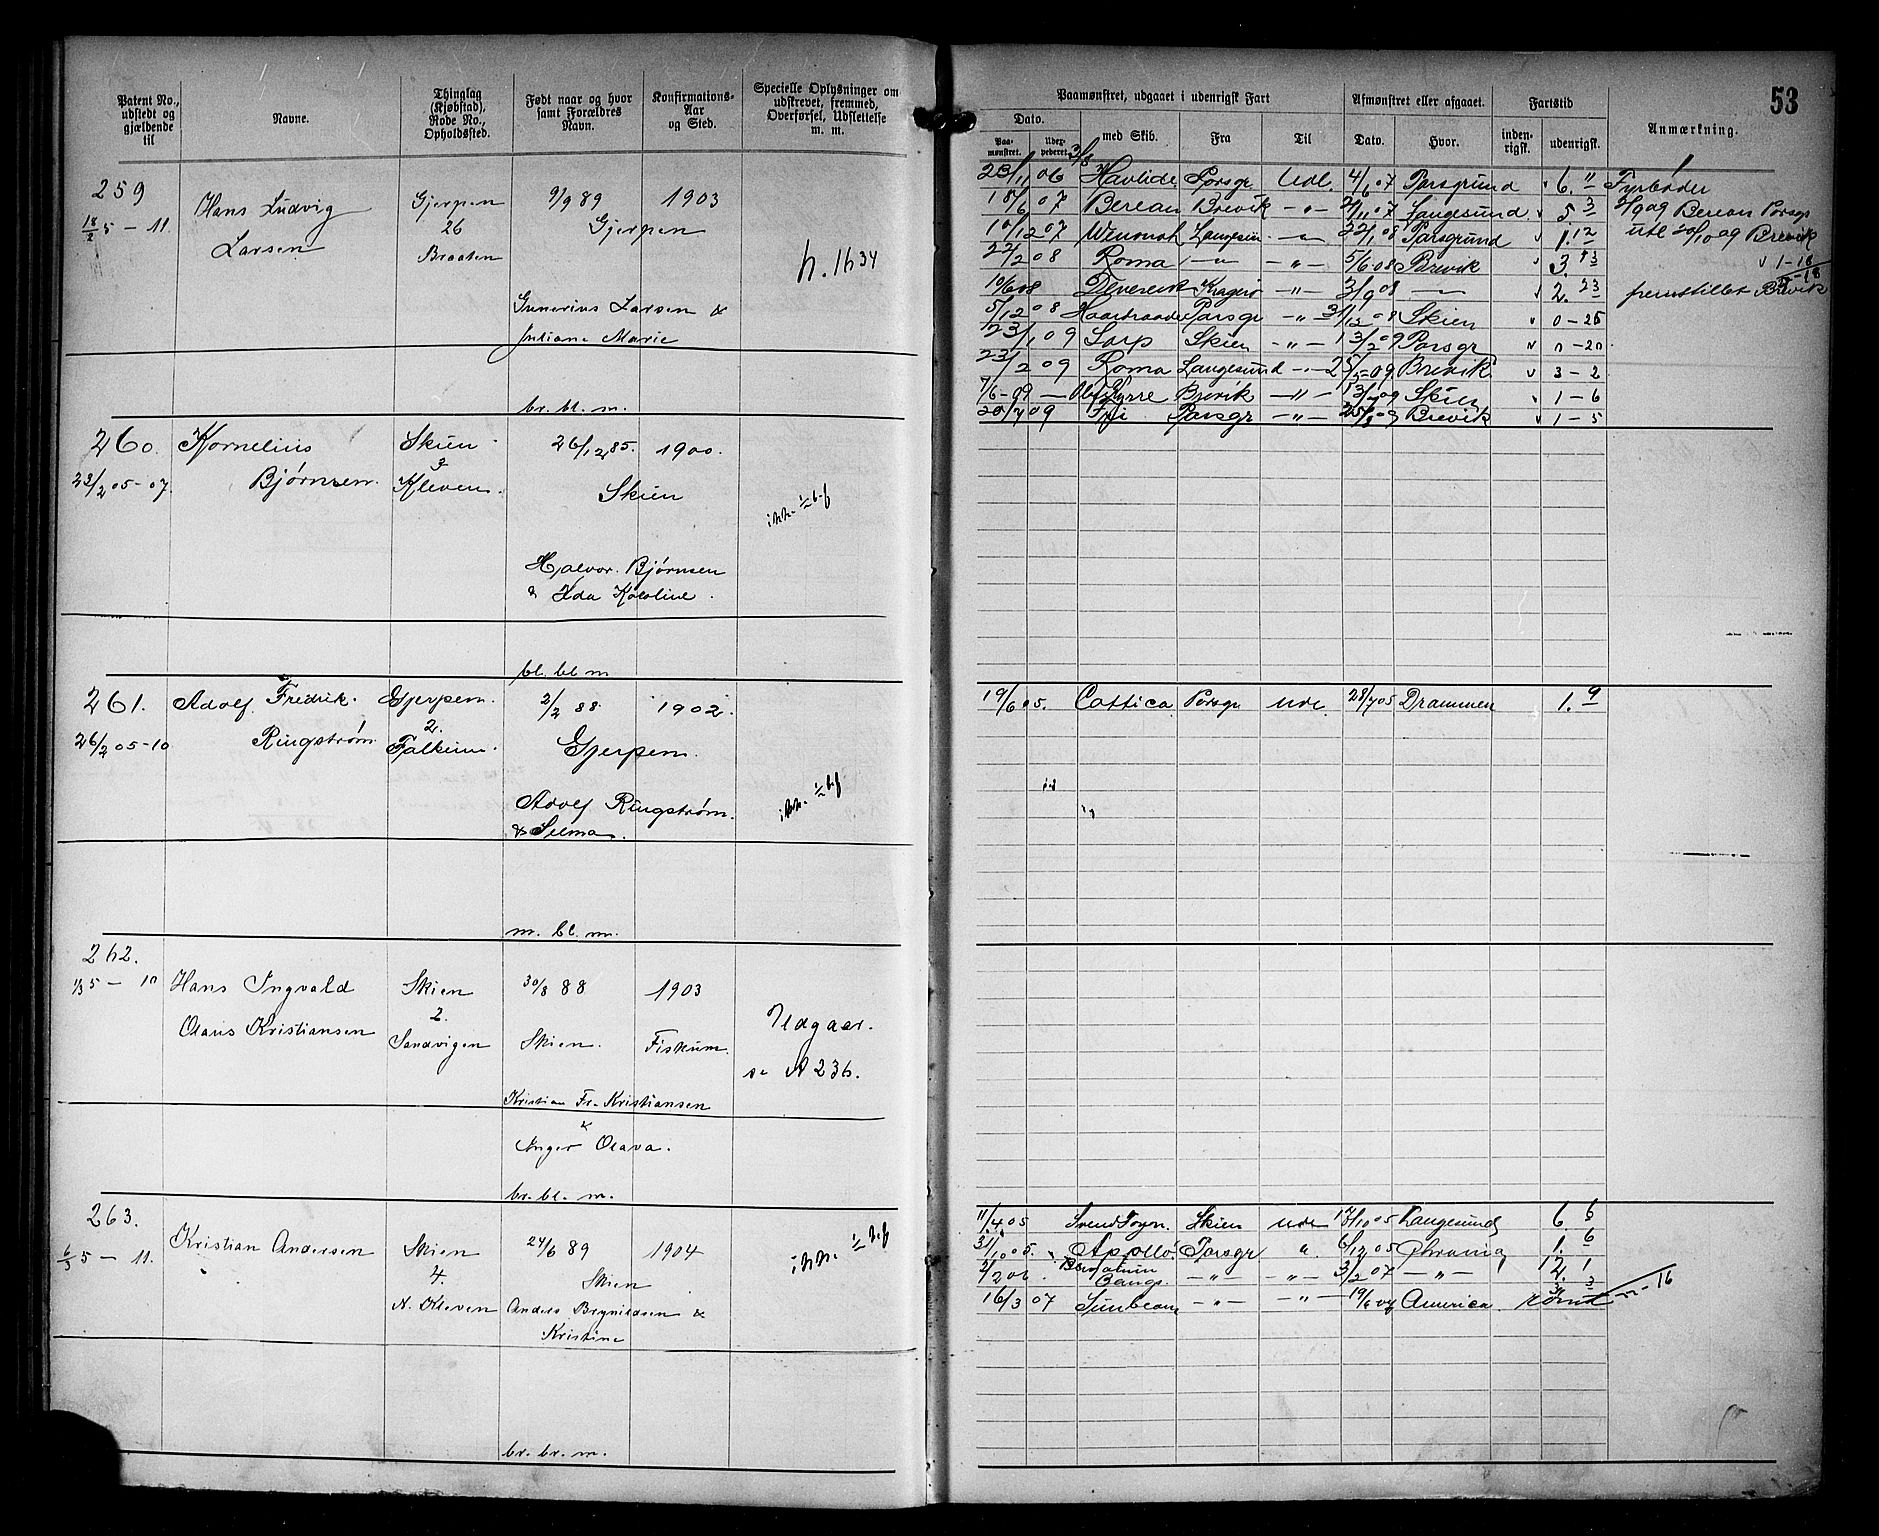 Patent No., udstedt og gjældende til
Navne.
Thinglag (Kjøbstad), Rode No., Opholdssted.
Født naar og hvor samt Forældres Navn.
Konfirmations-Aar og Sted.
Specielle Oplysninger om udskrevet, fremmed, Overførsel, Udslettelse m. m.
259
18/2 5 - 11.
Hans Ludvig
Larsen
Gjerpen
26
Braaten
9/9 89
1903
Gjerpen
Gunerius Larsen &
Juliane Marie
br. bl. m.
h. 1634
260.
23/2 05 - 07.
Kornelius
Bjørnsen.
Skien
3
Kleven.
26/12 85.
1900.
Skien
Halvor Bjørnsen
& Ida Karoline.
bl. bl m
261.
26/2 05-10
Adolf Fredrik.
Ringstrøm
Gjerpen.
2.
Falkum.
2/2 88.
1902.
Gjerpen.
Adolf Ringstrøm.
& Selma.
m. bl. m.
262.
1/3 5 - 10
Hans Ingvald
Olaus Kristiansen
Skien
2.
Sandvigen
30/8 88
1903
Skien.
Fiskum.
Kristian Fr. Kristiansen
&
Inger Olava.
br. bl. m.
Udgaar.
se A 236.
263.
6/3 5 - 11.
Kristian Andersen
Skien
4.
N. Kleven
24/6 89
1904
Skien
Anders Brynildsen &
Kristine
br. br. m.
53
Paamønstret, udgaaet i udenrigsk Fart
Afmønstret eller afgaaet.
Fartstid
Anmærkning.
Dato.
Paa-mønstret.
Udex-pederet.
med Skib.
Fra
Til
Dato.
Hvor.
inden-rigsk.
udenrigsk.
23/11 06 Havlide Porsgr Udl. 4/6 07 Porsgrund 6. 11 Fyrbøder
18/6 07 Berean Brevik - " - 2/11 07 Langesund. 5 3 2/9 09 Berean Porsgr
10/12 07 Wenonah Langesun - " - 22/1 08 Porsgrund 1. 12 utl 20/10 09 Brevik
22/2 08 Roma - " - - " - 5/6 08 Brevik 3. 13 1-18
10/6 08 Kragerø - " - 3/9 08 - " - 2. 23 fremstillet Brevik
5/12 08 Porsgr - " - 31/12 08 Skien 0 - 25
23/1 09 Sarp Skien - " - 13/2 09 Porsgr 0 - 20.
23/2 09 Roma Langesund - " - 25/5 09 Brevik 3 - 2
7/6 - 09 Brevik - " - 13/7 09 Skien 1 - 6
20/7 09 Fri Porsgr - " - 25/8 09 Brevik 1 - 5
19/6 05. Cottica Porsgr. Udl. 28/7 05 Drammen 1. 9
11/4 05 Svend Foyn. Skien Udl 17/10 05 Langesund 6. 6
31/10 05. Apollo Porsgr " 6/12 05 1. 6
2/2 06. - " - - " - 3/2 07 - " - 12. 1
16/3 07 Sunbeam - " - - " - 19/6 07 America. rømt